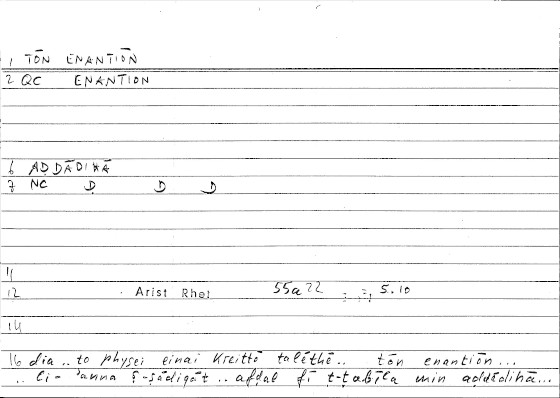 1 TŌN ENANTIŌN
2 QC ENANTION
6 AḌDĀDIHĀ
7 NC Ḍ Ḍ Ḍ
11
12 Arist Rhet 55a22 5.10
14
16 dia .. to physei einai kreittō talēthē .. tōn enantiōn ...
.. li- 'anna ṣ-ṣādiqāt .. afḍal fī ṭ-ṭabīʿa min aḍdādihā ...